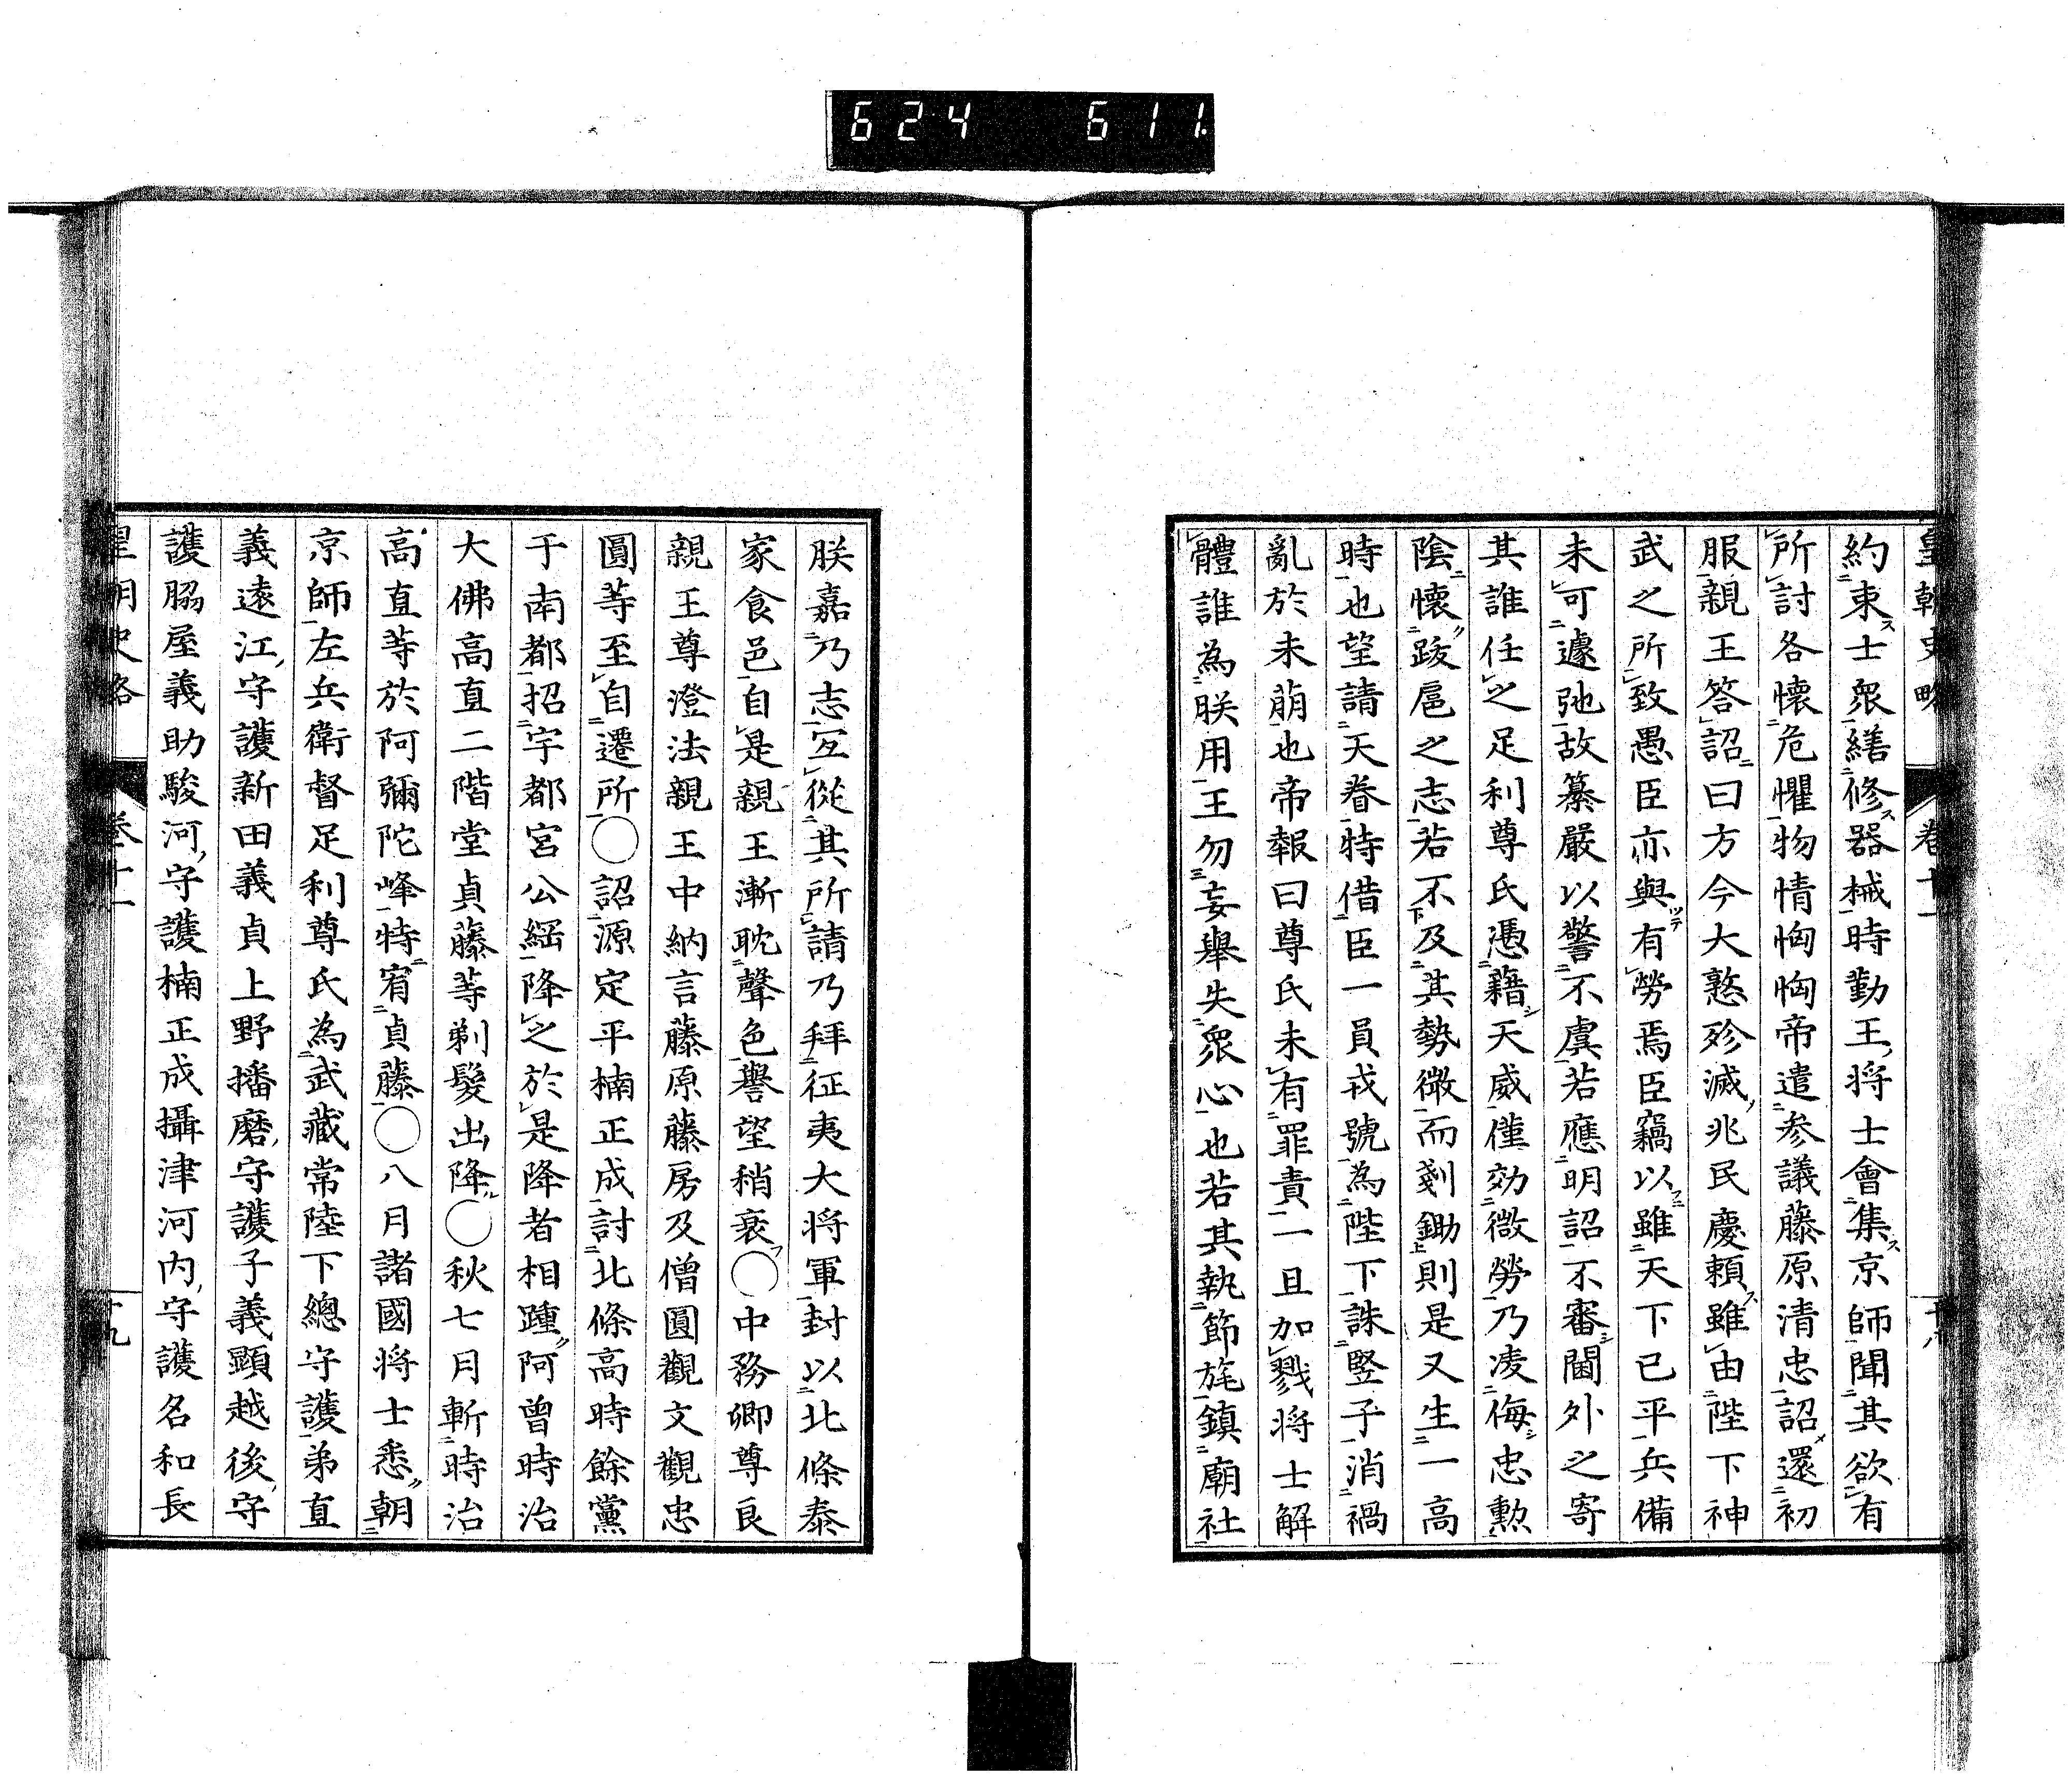 624 611
皇朝史略 卷十一 十八
約束士眾繕修器械時勤王將士會集京師聞其欲有
所討各懷危懼物情恟恟帝遣參議藤原清忠詔還初
服親王答詔曰方今大憝殄滅兆民慶賴雖由陛下神
武之所致愚臣亦與有勞焉臣竊以雖天下已平兵備
未可遽弛故纂嚴以警不虞若應明詔不審閫外之寄
其誰任之足利尊氏憑藉天威僅効微勞乃凌侮忠勲
陰懷跋扈之志若不及其勢微而剗鋤則是又生一高
時也望請天眷特借臣一員戎號為陛下誅豎子消禍
亂於未萠也帝報曰尊氏未有罪責一旦加戮將士解
體誰為朕用王勿妄舉失眾心也若其執節旄鎮廟社
朕嘉乃志宜從其所請乃拜征夷大將軍封以北條泰
家食邑自是親王漸耽聲色譽望稍衰〇中務卿尊良
親王尊澄法親王中納言藤原藤房及僧圓觀文觀忠
圓等至自遷所〇詔源定平楠正成討北條高時餘黨
于南都招宇都宮公綱降之於是降者相踵阿曾時治
大佛高直二階堂貞藤等剃髮出降〇秋七月斬時治
高直等於阿彌陀峰特宥貞藤〇八月諸國將士悉朝
京師左兵衛督足利尊氏為武藏常陸下總守護弟直
義遠江守護新田義貞上野播磨守護子義顯越後守
護脇屋義助駿河守護楠正成攝津河內守護名和長
皇朝史略 卷十一 十九